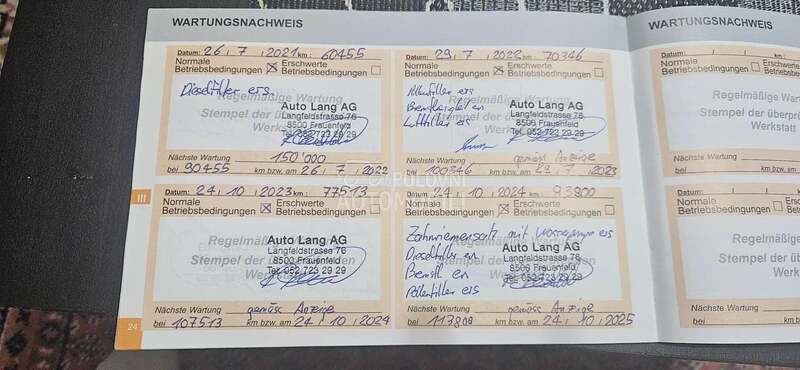 WARTUNGSNACHWEIS
Datum: 26 / 7 / 2021 km: 60455
Normale Betriebsbedingungen ☒ Erschwerte Betriebsbedingungen ☐
Dieselfilter ers.
Regelmäßige Wartung
Stempel der
Auto Lang AG
Langfeldstrasse 76
8500 Frauenfeld
Tel. 052 723 29 29
Nächste Wartung 150'000
bei 90455 km bzw. am 26 / 7 / 2022
Datum: 29 / 7 / 2022 km: 70346
Normale Betriebsbedingungen ☒ Erschwerte Betriebsbedingungen ☐
Pollenfilter ers
Luftfilter ers
Auto Lang AG
Langfeldstrasse 76
8500 Frauenfeld
Tel. 052 723 29 29
Nächste Wartung gemäss Anzeige
bei 100346 km bzw. am 29 / 7 / 2023
III
Datum: 24 / 10 / 2023 km: 77513
Normale Betriebsbedingungen ☒ Erschwerte Betriebsbedingungen ☐
Regelmäßige Wartung
Stempel der
Auto Lang AG
Langfeldstrasse 76
8500 Frauenfeld
Tel. 052 723 29 29
Nächste Wartung gemäss Anzeige
bei 107513 km bzw. am 24 / 10 / 2024
Datum: 24 / 10 / 2024 93800
Normale Betriebsbedingungen ☒ Erschwerte Betriebsbedingungen ☐
Zahnriemensatz mit Wasserpumpe ers
Dieselfilter ers
Pollenfilter ers
Auto Lang AG
Langfeldstrasse 76
8500 Frauenfeld
Tel. 052 723 29 29
Nächste Wartung gemäss Anzeige
bei 113800 km bzw. am 24 / 10 / 2025
24
POLOVNI
AUTOMOBILI
WARTUNGSNACHWEIS
Datum: / /
Normale
Betriebsbedingungen ☐
Regelmäßige
Stempel der überprü
Werkstatt
Nächste Wartung
bei km bzw.
Datum: / /
Normale
Betriebsbedingungen ☐
Regelmäßige
Stempel der überprü
Werkstatt
Nächste Wartung
bei km bzw.